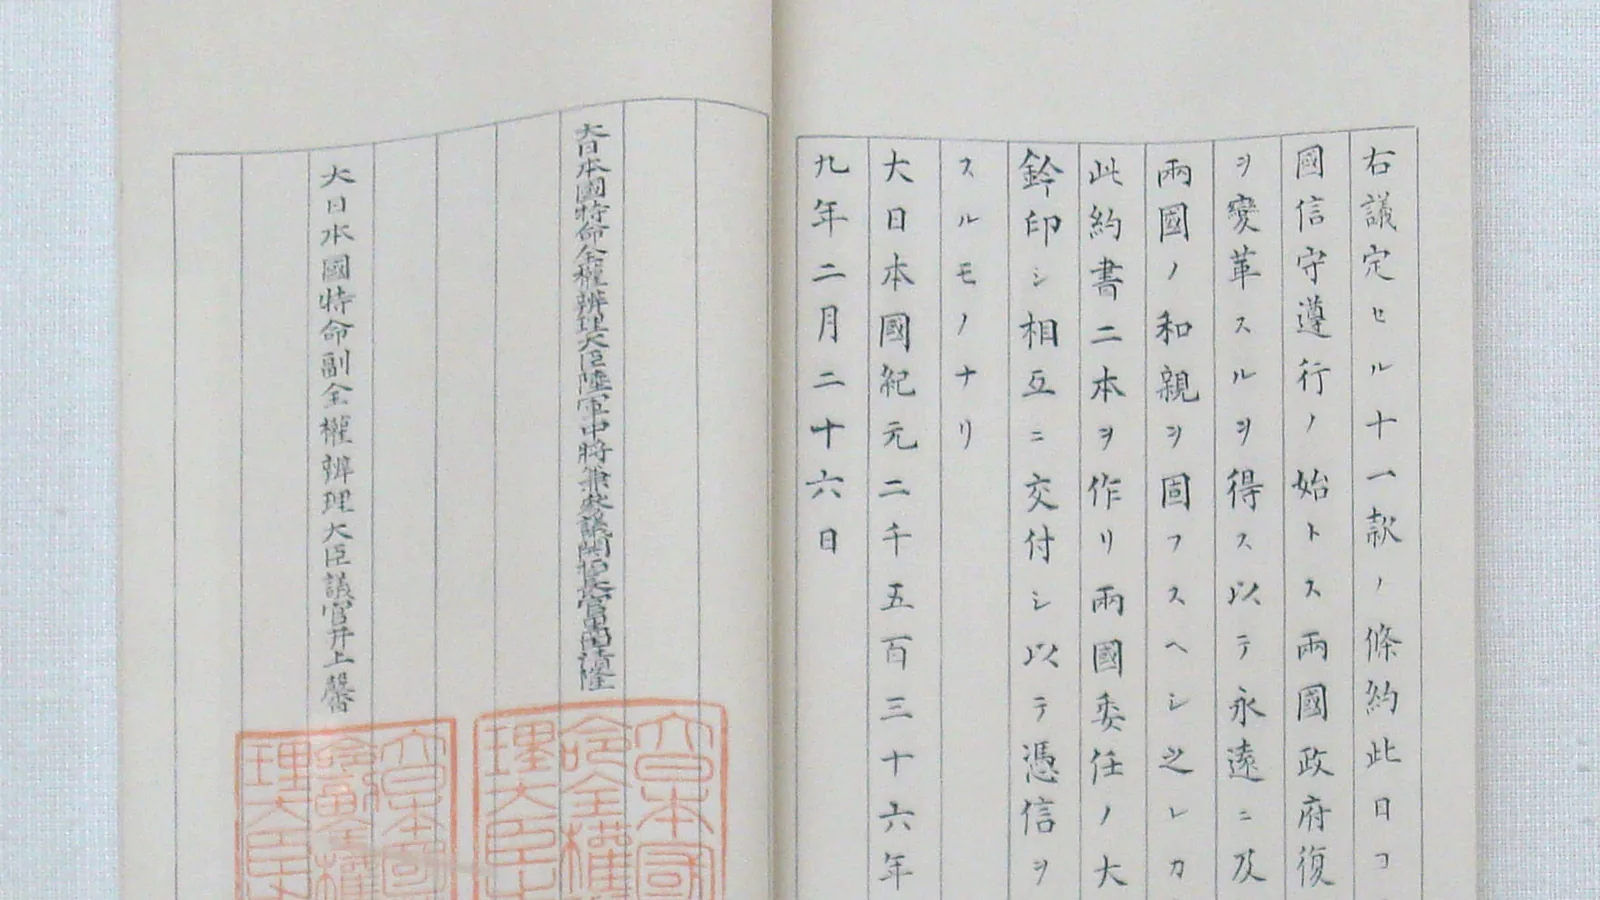 右議定セル十一款ノ條約此日ヨ
國信守遵行ノ始トス兩國政府復
ヲ變革スルヲ得ス以テ永遠ニ及
兩國ノ和親ヲ固フスヘシ之レカ
此約書二本ヲ作リ兩國委任ノ大
鈐印シ相互ニ交付シ以テ憑信ヲ
スルモノナリ
大日本國紀元二千五百三十六年
九年二月二十六日
大日本國特命全權辨理大臣陸軍中將兼參議開拓長官黒田清隆
大日本國特命副全權辨理大臣議官井上馨
大日本國
命全權
理大臣
大日本國
命副全權
理大臣